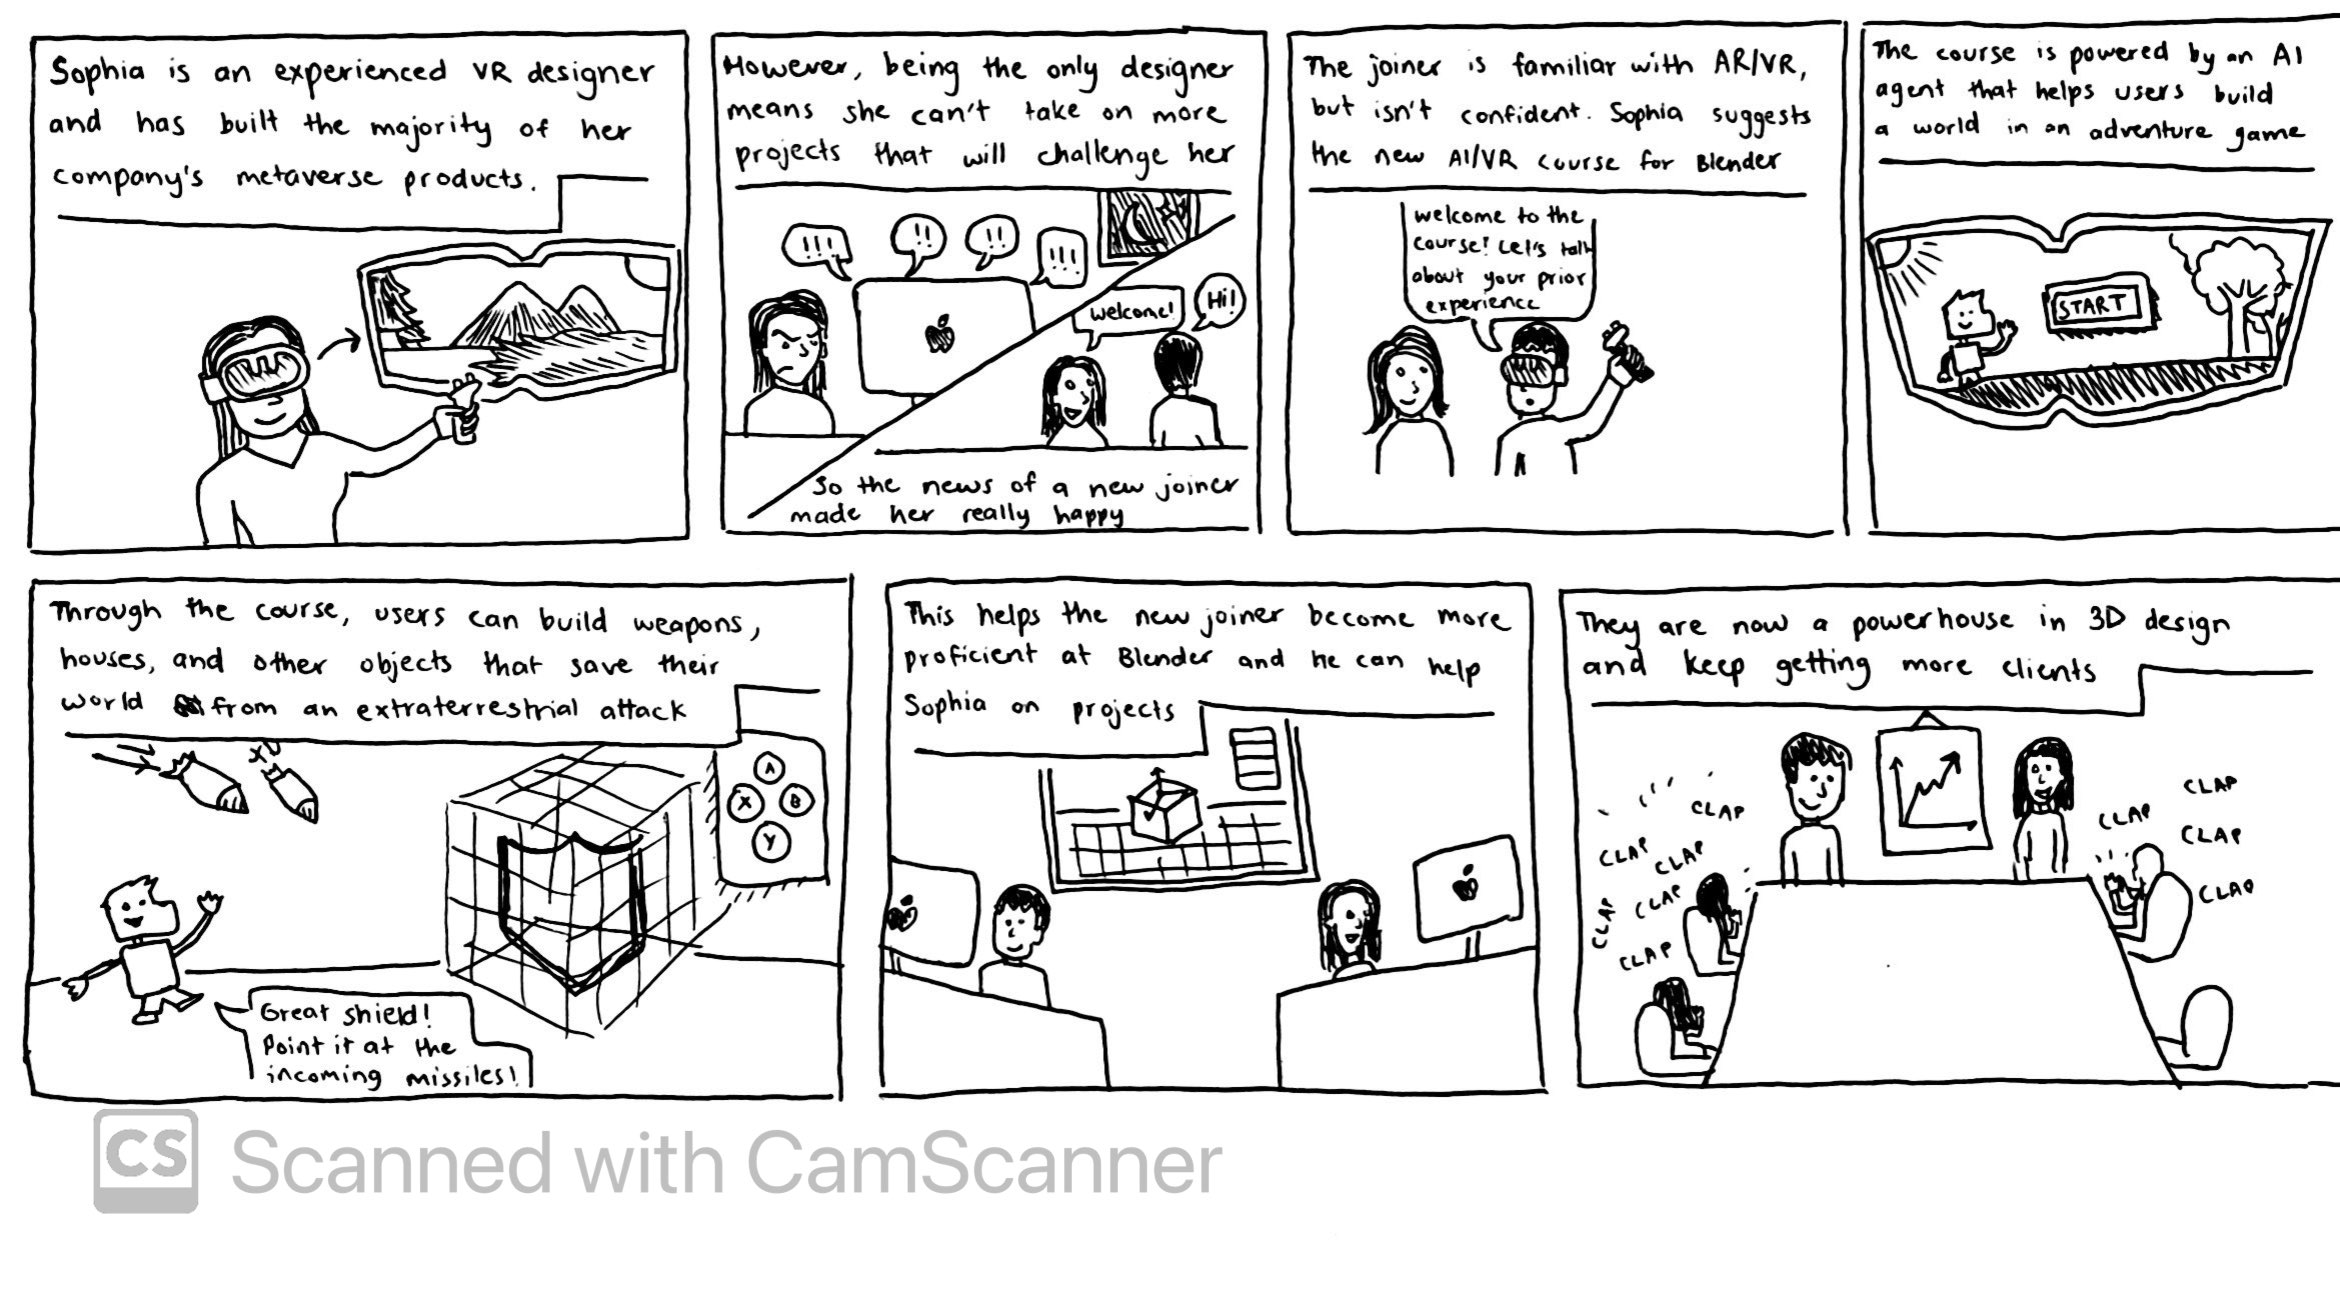 Sophia is an experienced VR designer
and has built the majority of her
company's metaverse products.
However, being the only designer
means she can't take on more
projects that will challenge her
!!!
!!
!!
!!!
Welcome!
Hi!
So the news of a new joiner
made her really happy
The joiner is familiar with AR/VR,
but isn't confident. Sophia suggests
the new AI/VR course for Blender
Welcome to the
course! Let's talk
about your prior
experience
The course is powered by an AI
agent that helps users build
a world in an adventure game
START
Through the course, users can build weapons,
houses, and other objects that save their
world from an extraterrestrial attack
A
X B
Y
Great shield!
Point it at the
incoming missiles!
This helps the new joiner become more
proficient at Blender and he can help
Sophia on projects
They are now a powerhouse in 3D design
and keep getting more clients
CLAP
CLAP
CLAP
CLAP
CLAP
CLAP
CLAP
CLAP
CLAP
CLAP
CS Scanned with CamScanner